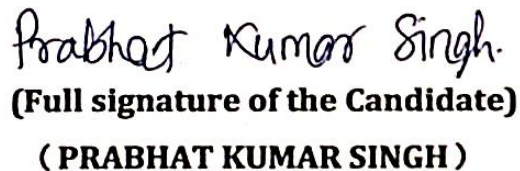 Prabhat Kumar Singh.
(Full signature of the Candidate)
( PRABHAT KUMAR SINGH )